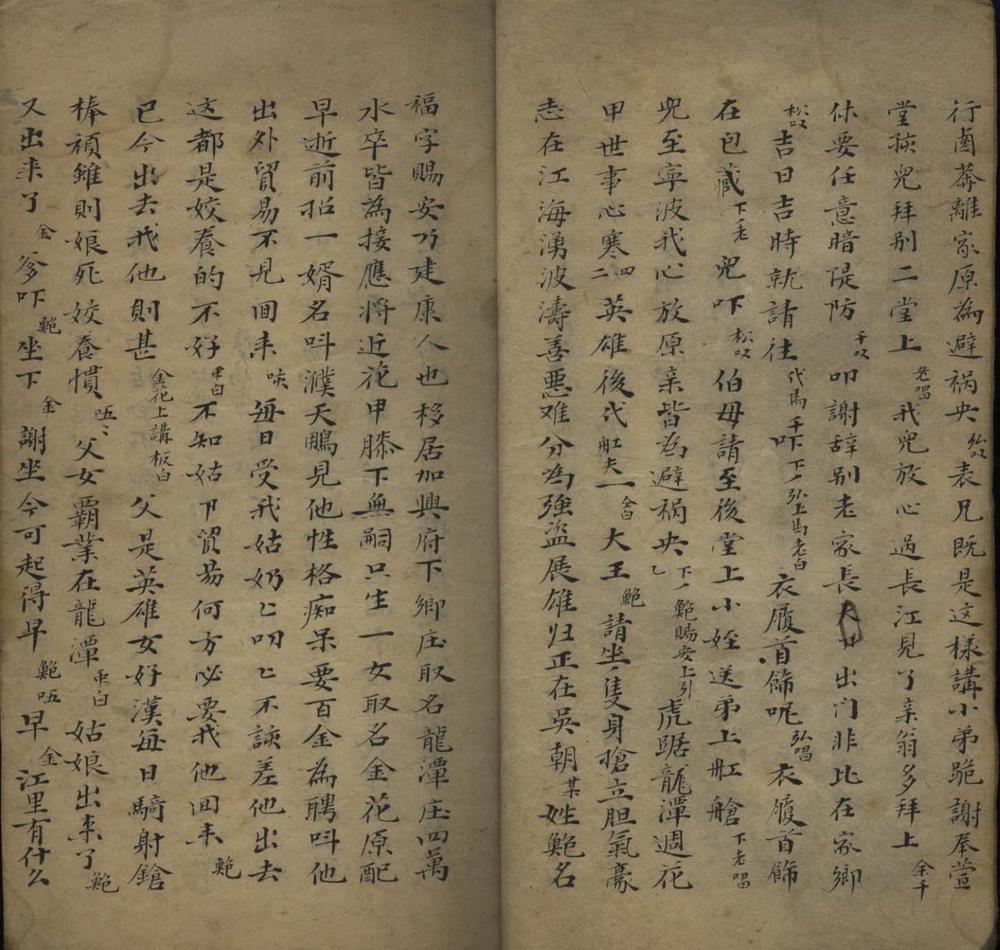 行囱莽離家原為避禍央弘叹表兄既是这樣講小弟跪謝奉萱
堂孩兒拜别二堂上老唱我兒放心过長江見了亲翁多拜上余千
休要任意暗隄防千叹叩謝辞别老家長出门非比在家鄉
松叹吉日吉時就請往代馬千吓下丿弘上馬老白衣履首飾呢弘唱衣履首飾
在包藏下老兒吓松叹伯母請至後堂上小姪送弟上舡艙下老唱
兒至寧波我心放原亲皆為避禍央乙下丿鲍賜安上引虎踞龍潭週花
甲世事心寒四二英雄後代舡夫一金白大王鲍請坐隻身搶立胆氣豪
志在江海湧波濤善悪难分為強盜展雄归正在吳朝某姓鲍名
福字賜安乃建康人也移居加興府下鄉庄取名龍潭庄四萬
水卒皆為接應将近花甲膝下無嗣只生一女取名金花原配
早逝前招一婿名呌濮天鵬見他性格痴呆要百金為聘呌他
出外貿易不見回来唉每日受我姑奶匕叨匕不該差他出去
这都是姣養的不好串白不知姑下貿易何方必要我他回来鲍
已今出去我他則甚金花上講板白父是英雄女好漢每日騎射鎗
棒頑錐則娘死姣養慣呸丶父女覇業在龍潭串白姑娘出来了鲍
又出来了金爹吓鲍坐下金謝坐今可起得早鲍呸早金江里有什么